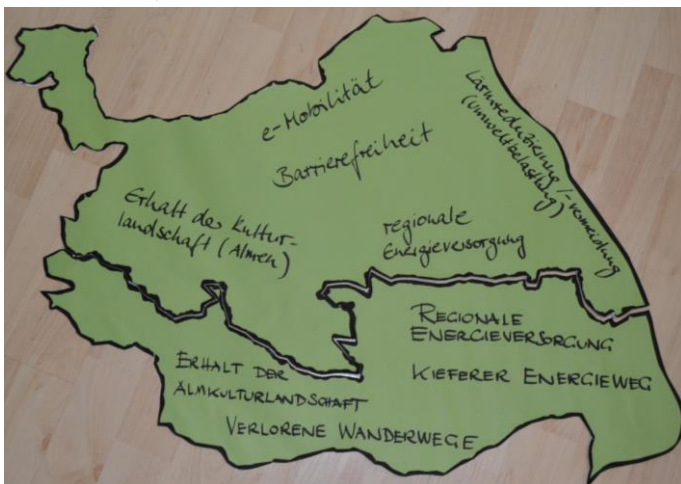 e-Mobilität
Barrierefreiheit
Lärmreduzierung /-vermeidung
(Umweltbelastung)
Erhalt der Kultur-
landschaft (Almen)
regionale
Energieversorgung
REGIONALE
ENERGIEVERSORGUNG
KIEFERER ENERGIEWEG
ERHALT DER
ALMKULTURLANDSCHAFT
VERLORENE WANDERWEGE